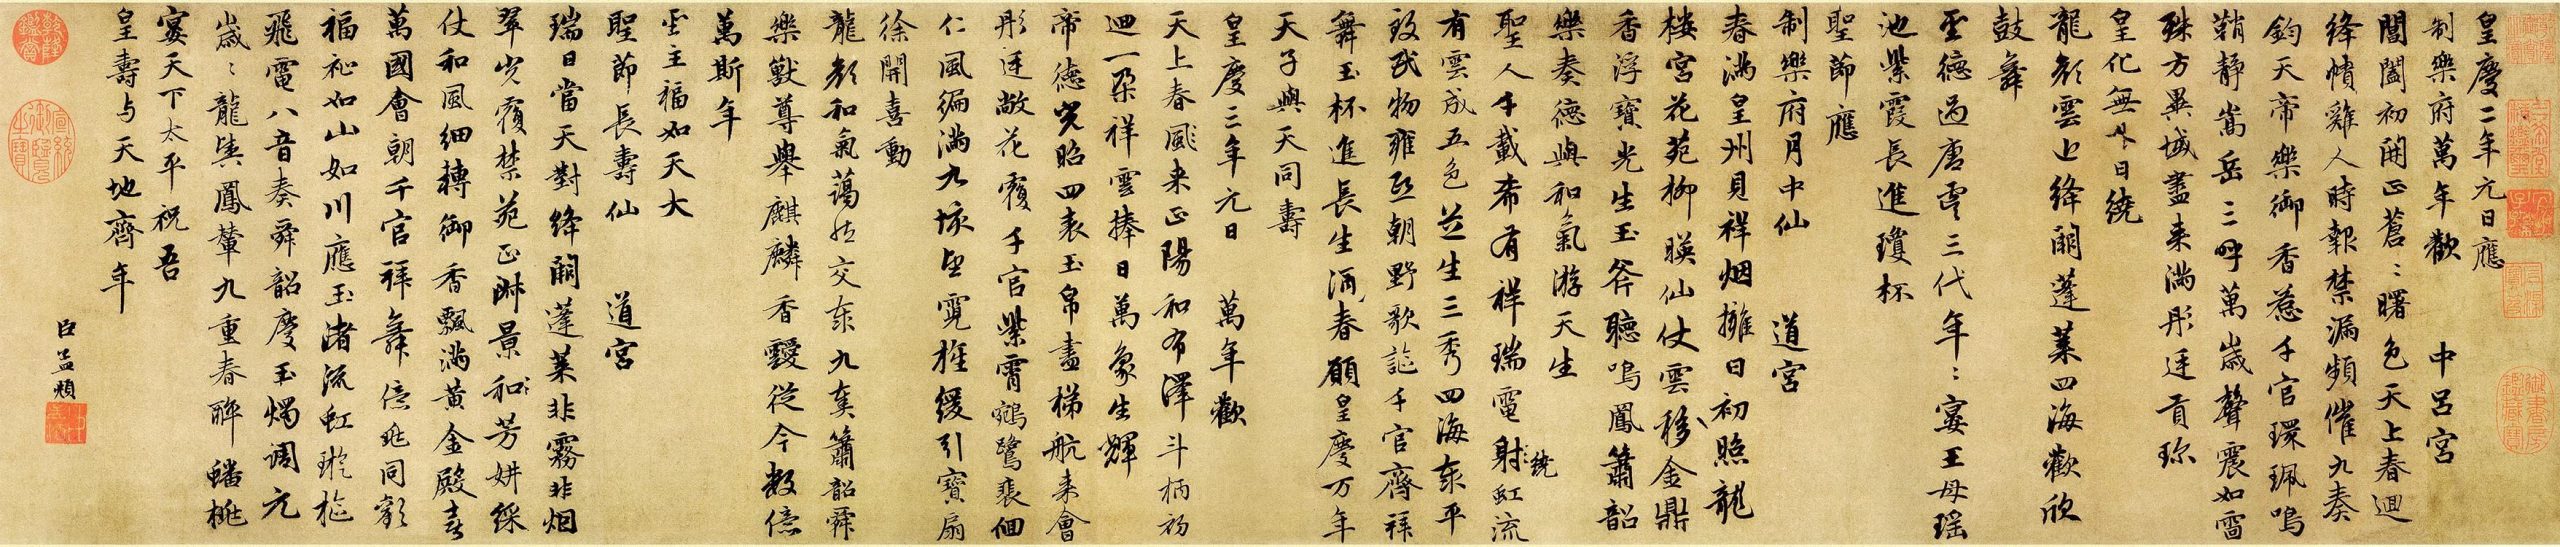 皇慶二年元日應
制樂府萬年歡　中呂宮
閶闔初開正蒼〻曙色天上春迴
絳幘雞人時報禁漏頻催九奏
鈞天帝樂御香惹千官環珮鳴
鞘靜嵩岳三呼萬歲聲震如雷
殊方異域盡来滿彤廷貢珎
皇化無外日繞
龍顔雲上絳闕蓬萊四海歡欣
鼓舞
聖德過唐虞三代年〻宴王母瑤
池紫霞長進瓊杯
聖節應
制樂府月中仙　道宮
春滿皇州見祥烟擁日初照龍
樓宮花苑柳暎仙仗雲移金鼎
香浮寶光生玉斧聽鳴鳳簫韶
樂奏德與和氣游天生
聖人千載希有祥瑞電繞射虹流
有雲成五色芝生三秀四海泰平
致民物雍熙朝野歌謳千官齊拜
舞玉杯進長生酒春願皇慶万年
天子與天同壽
皇慶三年元日　萬年歡
天上春颷来正陽和布澤斗柄初
迴一朶祥雲捧日萬象生輝
帝德光昭四表玉帛盡梯航来會
彤廷敞花覆千官紫霄鵷鷺裴佪
仁風徧滿九垓望霓旌緩引寶扇
徐開喜動
龍顔和氣藹然交泰九奏簫韶舜
樂獸尊舉麒麟香靉從今數億
萬斯年
聖主福如天大
聖節長壽仙　道宮
瑞日當天對絳闕蓬萊非霧非烟
翠光覆禁苑正淑景和芳妍綵
仗和風細轉御香飄滿黃金殿喜
萬國會朝千官拜舞億兆同歡
福祉如山如川應玉渚流虹璇樞
飛電八音奏舜韶慶玉燭調元
歲〻龍輿鳳輦九重春醉蟠桃
宴天下太平祝吾
皇壽与天地齊年
臣孟頫